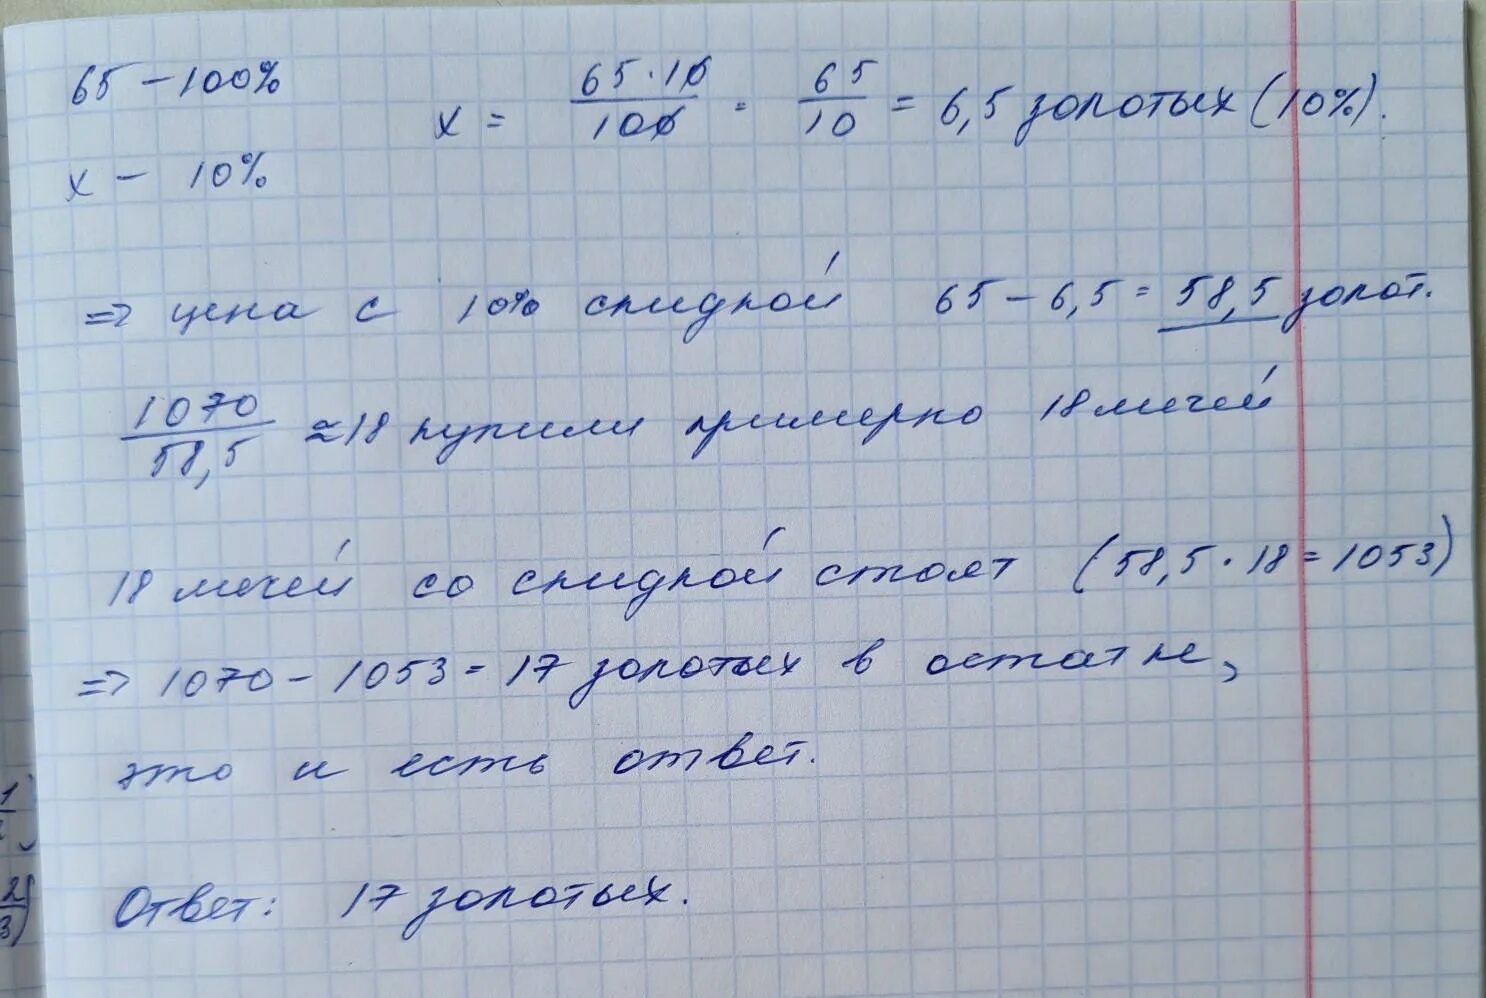 65 – 100%
x = 65·10/100 = 65/10 = 6,5 золотых (10%).
x – 10%
=> цена с 10% скидкой 65 – 6,5 = 58,5 золот.
1070/58,5 ≈ 18 купили примерно 18 мечей
18 мечей со скидкой стоят (58,5 · 18 = 1053)
=> 1070 – 1053 = 17 золотых в остатке,
это и есть ответ.
Ответ: 17 золотых.